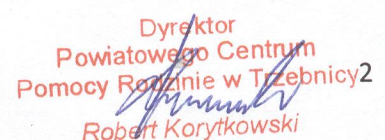 Dyrektor
Powiatowego Centrum
Pomocy Rodzinie w Trzebnicy2
Robert Korytkowski